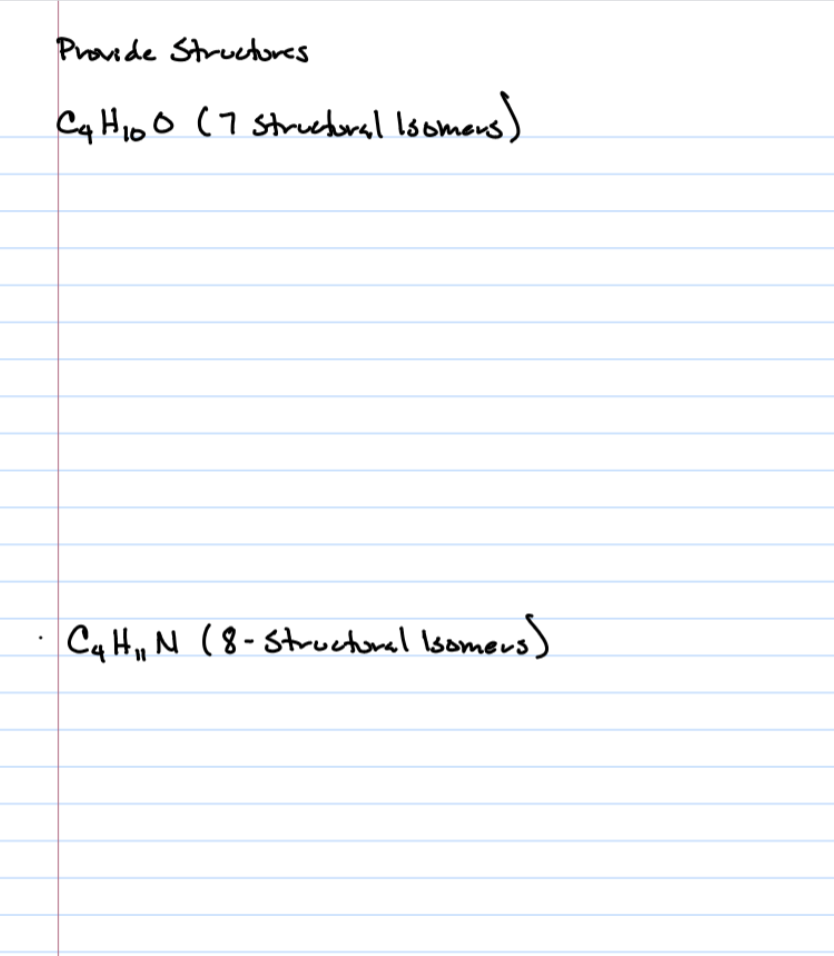 Provide Structures
C₄H₁₀O (7 Structural Isomers)
· C₄H₁₁N (8-Structural Isomers)